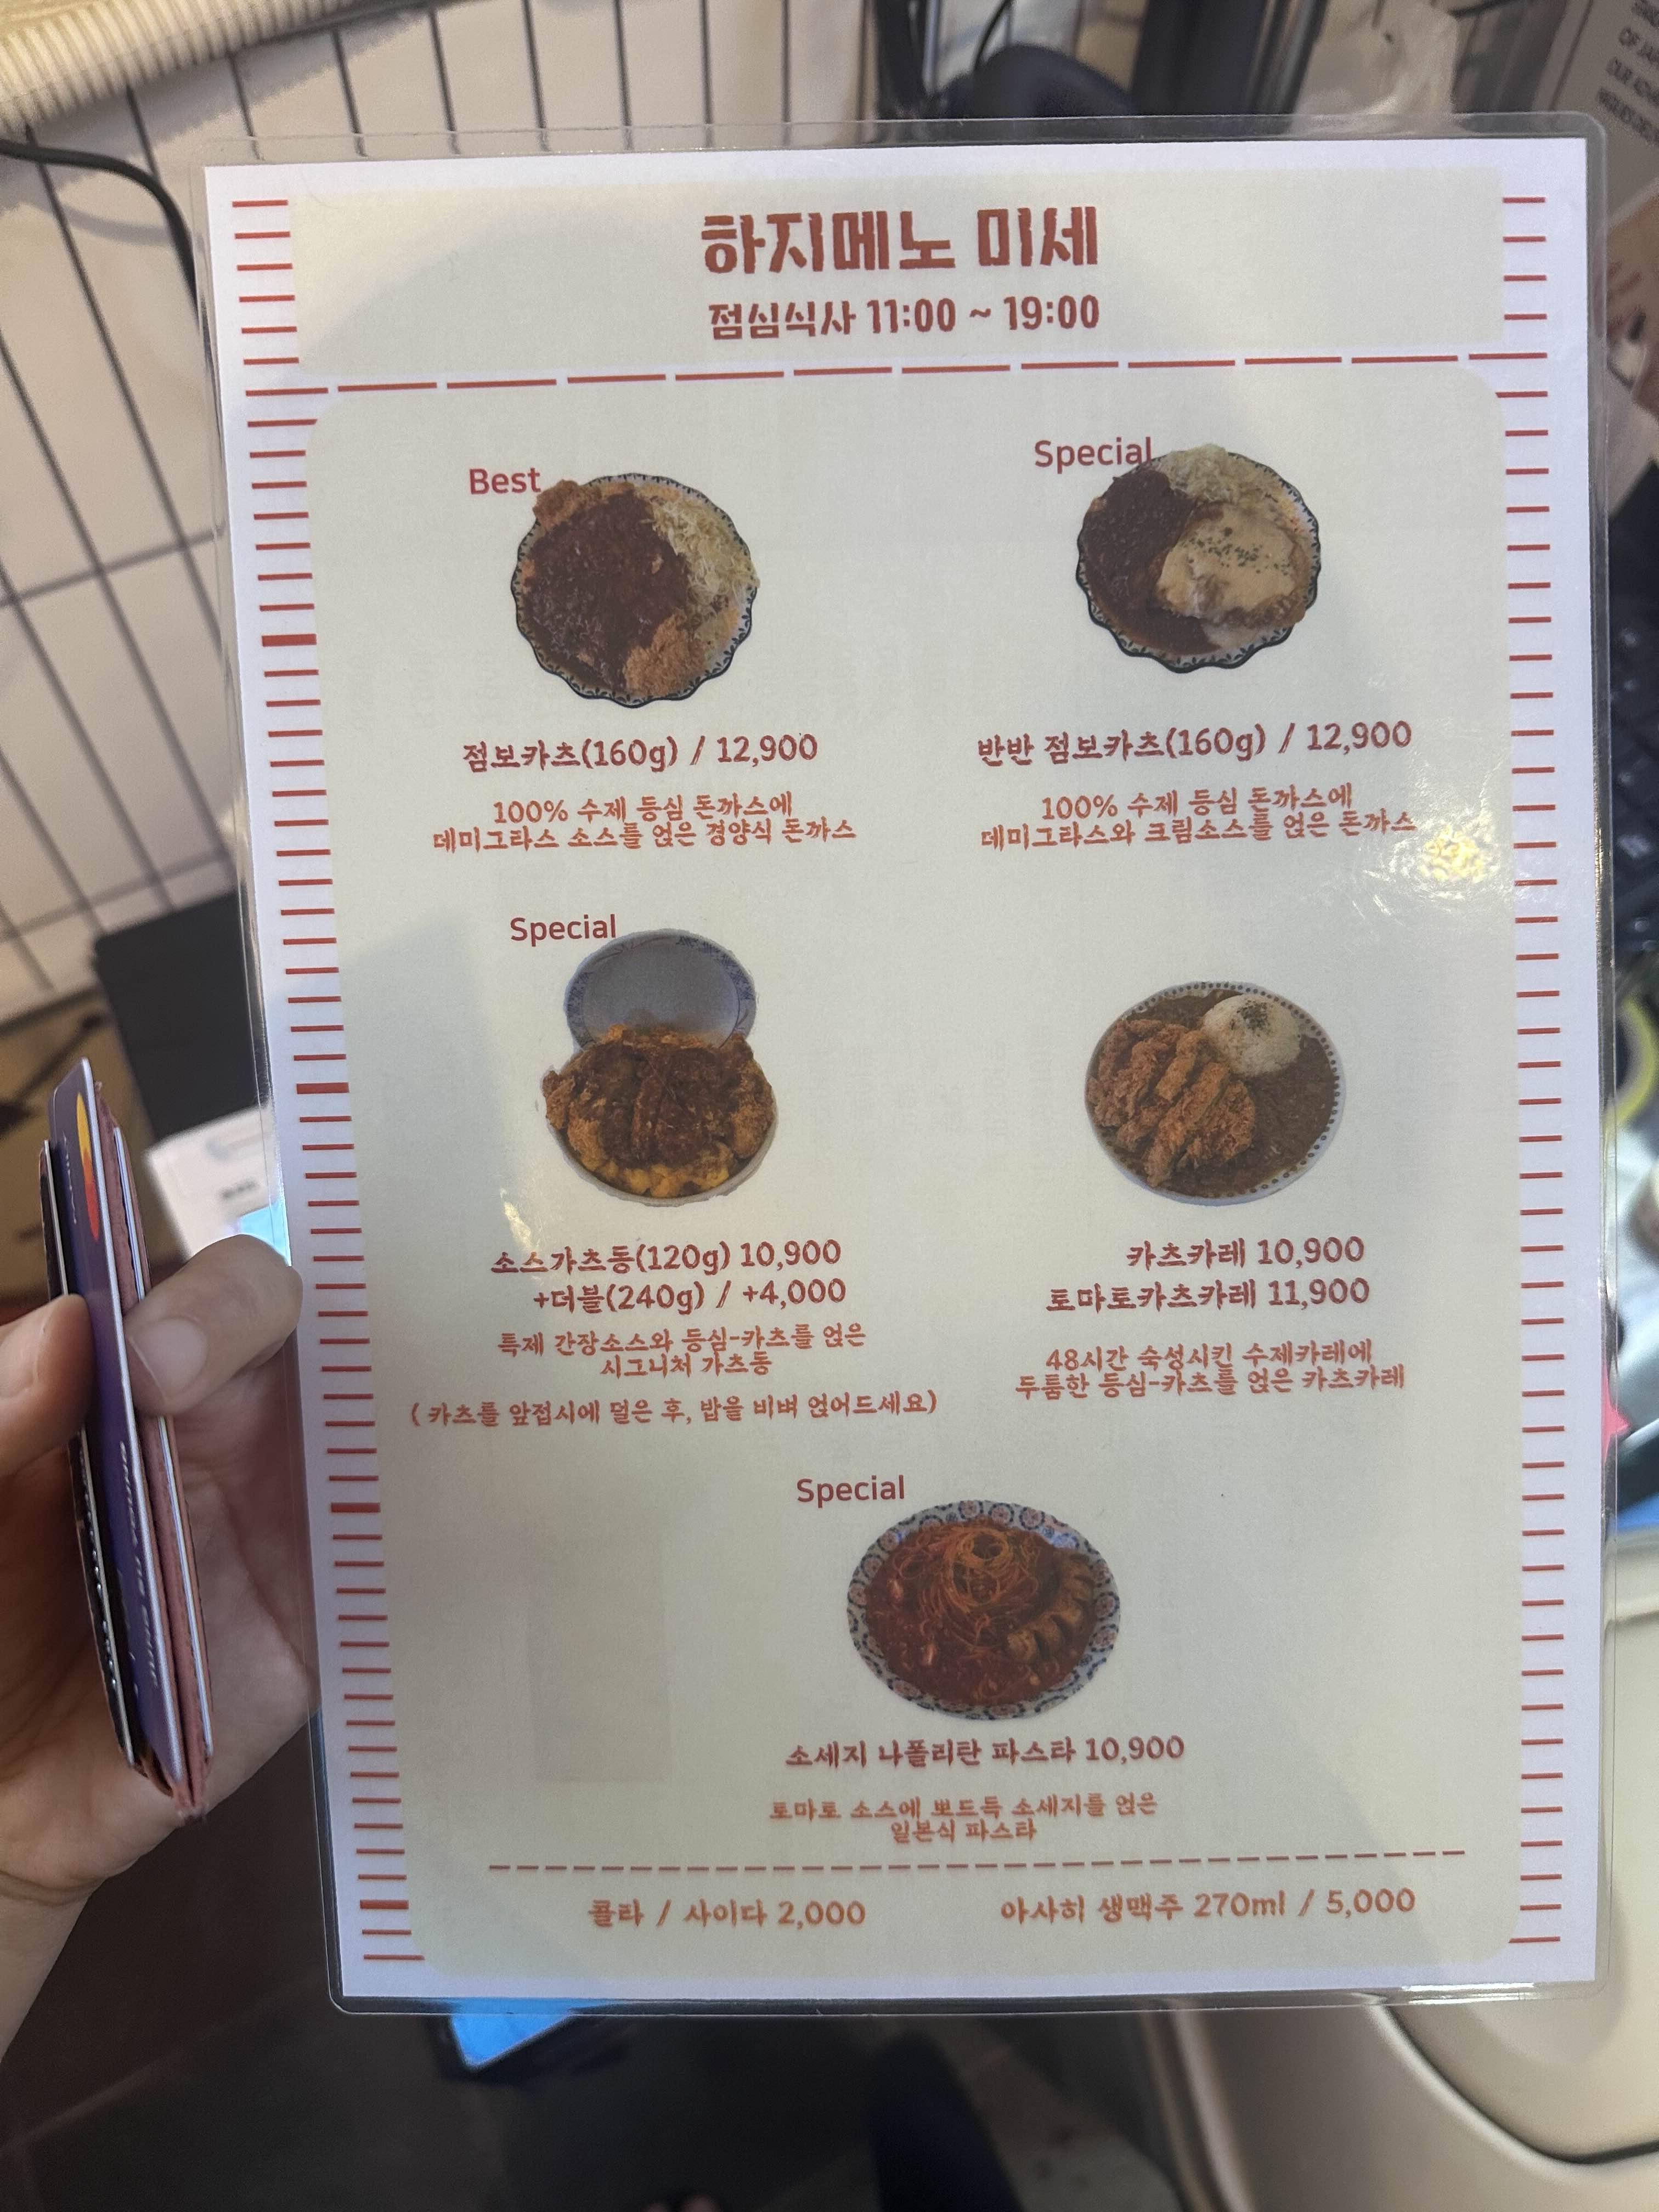 하지메노 미세
점심식사 11:00 ~ 19:00
Best
Special
점보카츠(160g) / 12,900
반반 점보카츠(160g) / 12,900
100% 수제 등심 돈까스에
데미그라스 소스를 얹은 경양식 돈까스
100% 수제 등심 돈까스에
데미그라스와 크림소스를 얹은 돈까스
Special
소스가츠동(120g) 10,900
+더블(240g) / +4,000
특제 간장소스와 등심-카츠를 얹은
시그니처 가츠동
( 카츠를 앞접시에 덜은 후, 밥을 비벼 얹어드세요)
카츠카레 10,900
토마토카츠카레 11,900
48시간 숙성시킨 수제카레에
두툼한 등심-카츠를 얹은 카츠카레
Special
소세지 나폴리탄 파스타 10,900
토마토 소스에 뽀드득 소세지를 얹은
일본식 파스타
콜라 / 사이다 2,000
아사히 생맥주 270ml / 5,000